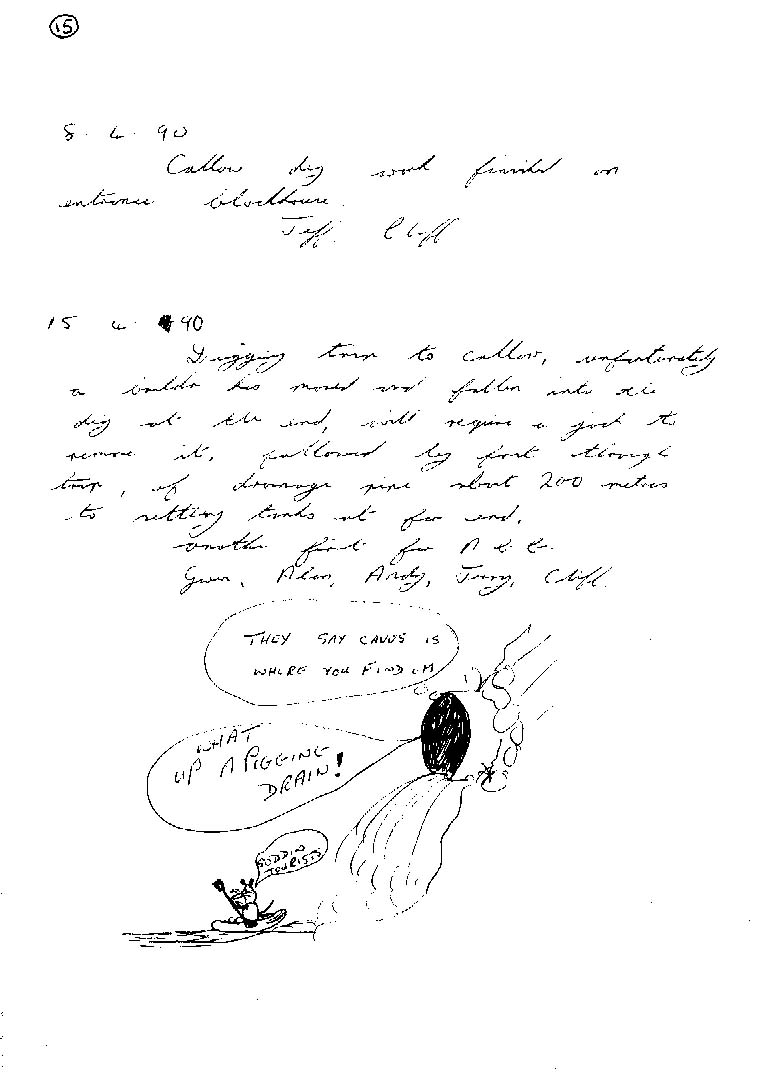 15
8. 4. 90
Callow dig work finished on
entrance blockhouse.
Jeff. Cliff
15 4. 90
Digging trip to Callow, unfortunately
a bouldr has moved and fallen into the
dig at the end, will require a jack to
remove it, followed by first through
trip, of drainage pipe about 200 metres
to settling tanks at far end.
another first for
Alan, Andy, Cliff.
THEY SAY CAVUS IS
WHERE YOU FIND UM
WHAT
UP A PIGGING
DRAIN!
SODDIN
TOURISTS